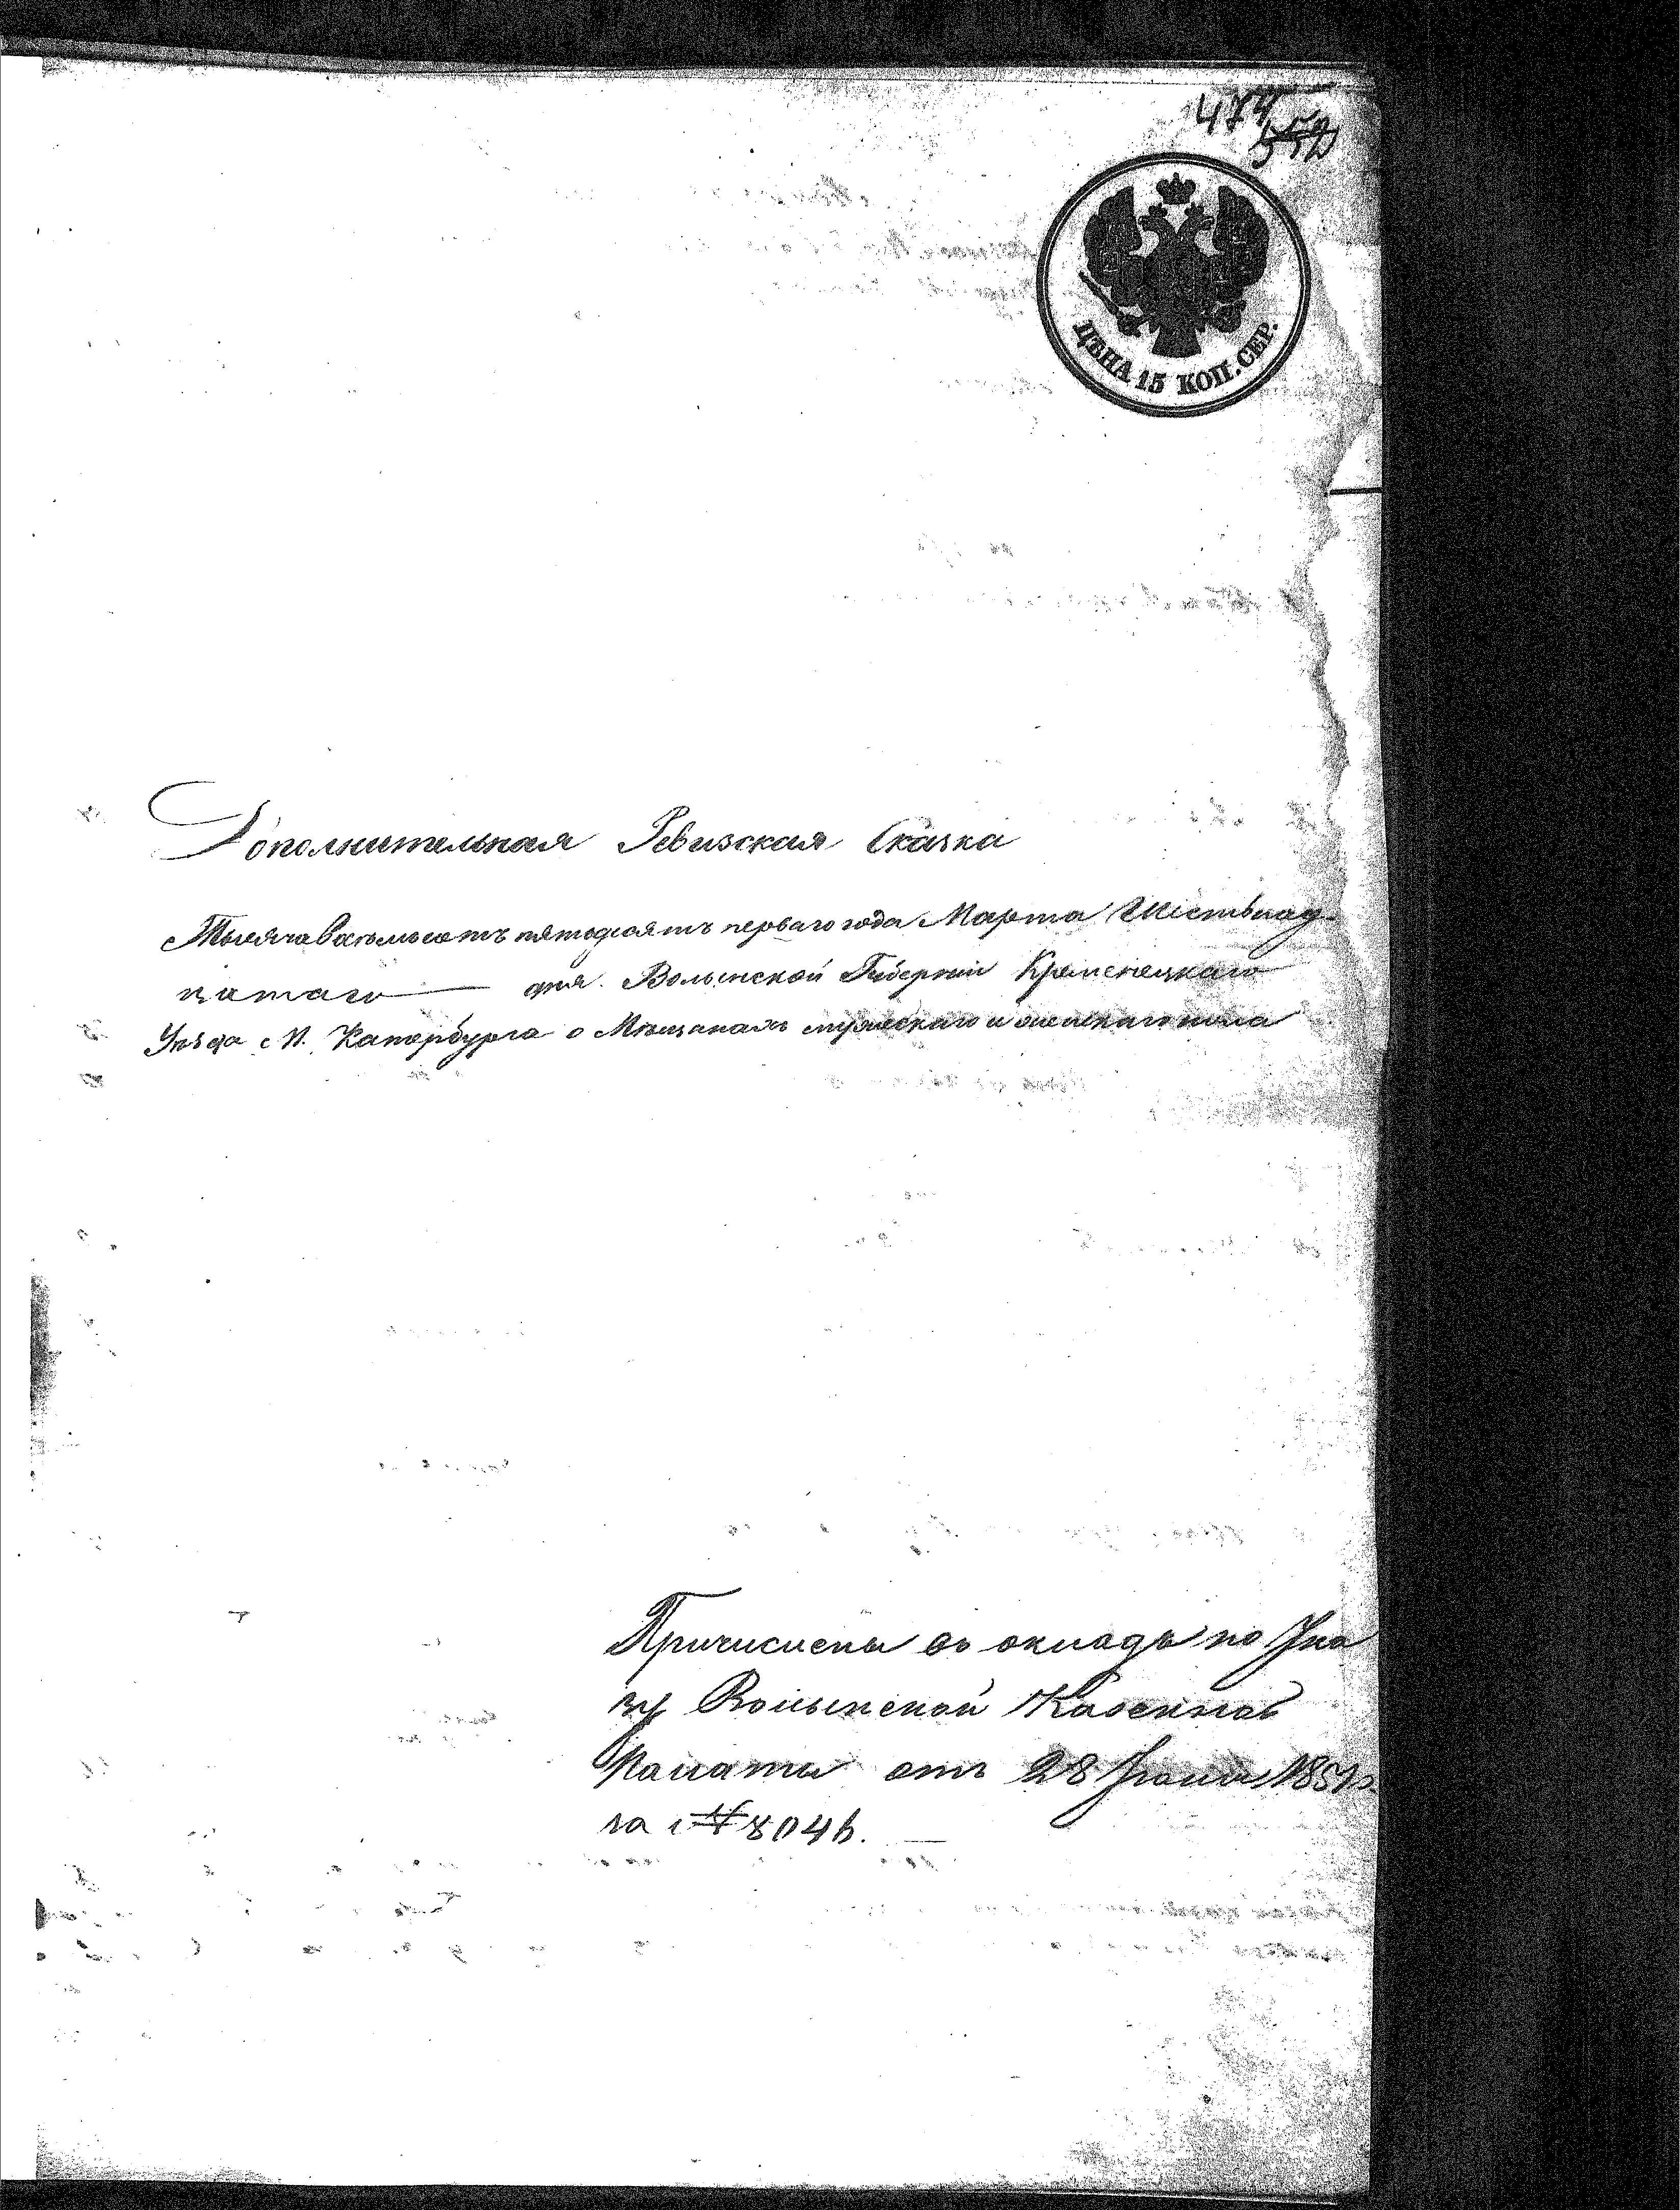 474
552
ЦѢНА 15 КОП. СЕР.
Дополнительная Ревизская Сказка
Тысяча восемьсотъ пятьдесятъ перваго года Марта Шестьнад-
цатаго — дня. Волынской Губерніи Кременецкаго
Уѣзда м. Катербурга о Мѣщанахъ мужескаго и женскаго пола
Причислены въ окладъ по Ука
зу Волынской Казенной
Палаты отъ 28 Іюня 1851 г.
за № 8046. —